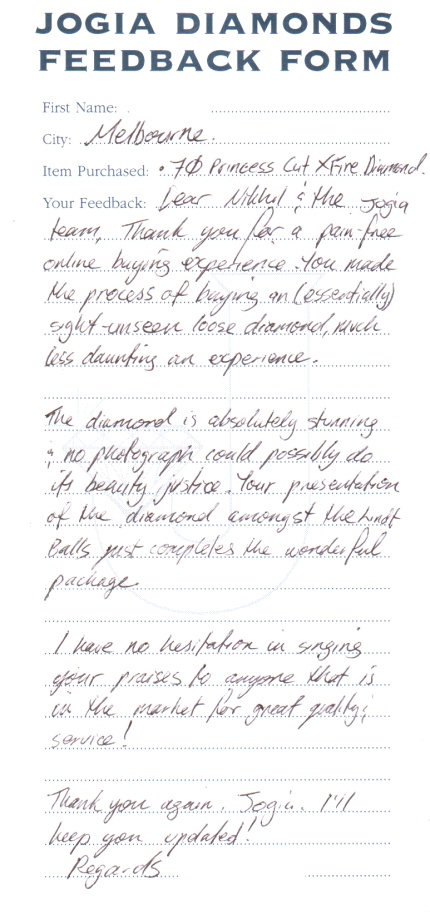 JOGIA DIAMONDS
FEEDBACK FORM
First Name:
City: Melbourne.
Item Purchased: .70 Princess Cut XFire Diamond.
Your Feedback: Dear Nikhil & the Jogia
team, Thank you for a pain-free
online buying experience. You made
the process of buying an (essentially)
sight-unseen loose diamond, much
less daunting an experience.
The diamond is absolutely stunning
& no photograph could possibly do
its beauty justice. Your presentation
of the diamond amongst the Lindt
Balls just completes the wonderful
package.
I have no hesitation in singing
your praises to anyone that is
in the market for great quality &
service!
Thank you again, Jogia. I'll
keep you updated!
Regards